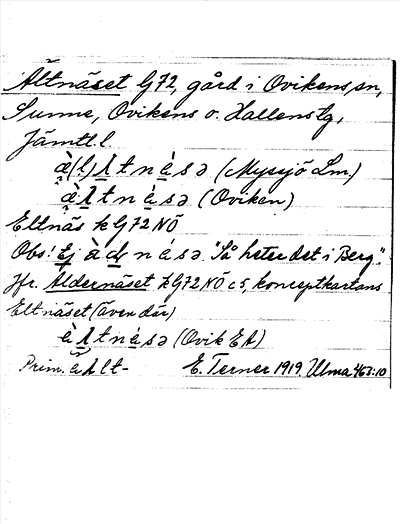 Ältnäset G72, gård i Ovikens sn,
Sunne, Ovikens o. Hallens tg,
Jämtl. l
æ̀(l) ʌ t n é s ə (Myssjö Lm.)
æ̀ ʌ t n é s ə (Oviken)
Eltnäs k G72 NÖ
Obs! Ej à dɳ n é s ə. "Så heter det i Berg".
Jfr. Aldernäset k G72 NÖ c5, konceptkartans
Eltnäset (även där)
è ʌ t n é s ə (Ovik EA)
Prim. E. Terner 1919. Ulma 463:10